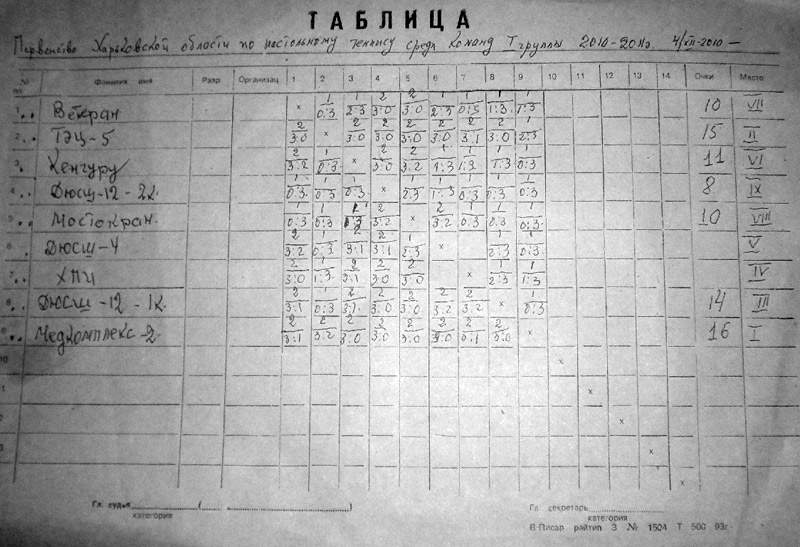 ТАБЛИЦА
Первенство Харьковской области по настольному теннису среди команд I группы 2010-2011г. 4/XII-2010 —
№ Фамилия имя Разр. Организац. 1 2 3 4 5 6 7 8 9 10 11 12 13 14 Очки Место
1 Векран x 1/0:3 1/2:3 2/3:0 2/3:0 1/2:3 1/0:3 1/1:3 1/1:3 10 VII
2 ТЭЦ-5 2/3:0 x 2/3:0 2/3:0 2/3:0 2/3:0 2/3:1 2/3:0 1/2:3 15 II
3 Кенгуру 2/3:2 1/0:3 x 2/3:0 2/3:2 1/1:3 1/1:3 1/1:3 1/0:3 11 VI
4 ДЮСШ-12-2к. 1/0:3 1/0:3 1/0:3 x 1/2:3 1/1:3 1/0:3 1/0:3 1/0:3 8 IX
5 Мостокран 1/0:3 1/0:3 2/3:2 x 2/3:2 1/0:3 1/0:3 1/0:3 10 VIII
6 ДЮСШ-4 2/3:2 1/0:3 2/3:1 2/3:1 1/2:3 x 1/2:3 1/0:3 V
7 ХПИ 2/3:0 1/1:3 2/3:1 2/3:0 2/3:0 x 1/2:3 1/1:3 IV
8 ДЮСШ-12-1к. 2/3:1 1/0:3 2/3:1 2/3:0 2/3:0 2/3:2 2/3:2 x 1/0:3 14 III
9 Медкомплекс-2 2/3:1 2/3:2 2/3:0 2/3:0 2/3:0 2/3:0 2/3:0 x 16 I
10 x
x
x
x
x
Гл. судья ( ) Гл. секретарь
категория категория
В-Писар. райтип З № 1504 Т 500 93г.